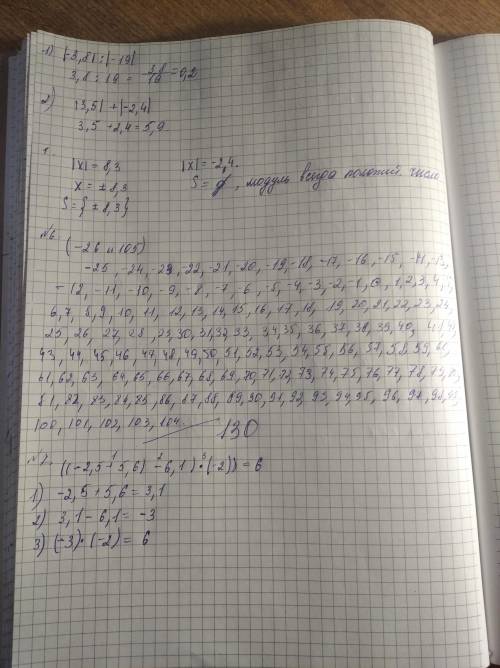 1) |-3,8| : |-19|
3,8 : 19 = 3,8/19 = 0,2
2) |3,5| + |-2,4|
3,5 + 2,4 = 5,9
1.
|x| = 8,3 |x| = -2,4.
x = ± 8,3 S = ∅, модуль всегда положит. число
S = {± 8,3}
№6.
(-26 и 105)
-25, -24, -23, -22, -21, -20, -19, -18, -17, -16, -15, -14, -13,
-12, -11, -10, -9, -8, -7, -6, -5, -4, -3, -2, -1, 0, 1, 2, 3, 4, 5,
6, 7, 8, 9, 10, 11, 12, 13, 14, 15, 16, 17, 18, 19, 20, 21, 22, 23, 24,
25, 26, 27, 28, 29, 30, 31, 32, 33, 34, 35, 36, 37, 38, 39, 40, 41, 42,
43, 44, 45, 46, 47, 48, 49, 50, 51, 52, 53, 54, 55, 56, 57, 58, 59, 60,
61, 62, 63, 64, 65, 66, 67, 68, 69, 70, 71, 72, 73, 74, 75, 76, 77, 78, 79, 80,
81, 82, 83, 84, 85, 86, 87, 88, 89, 90, 91, 92, 93, 94, 95, 96, 97, 98, 99,
100, 101, 102, 103, 104. 130
№7. ((-2,5 + 5,6) - 6,1) · (-2)) = 6
1) -2,5 + 5,6 = 3,1
2) 3,1 - 6,1 = -3
3) (-3) · (-2) = 6